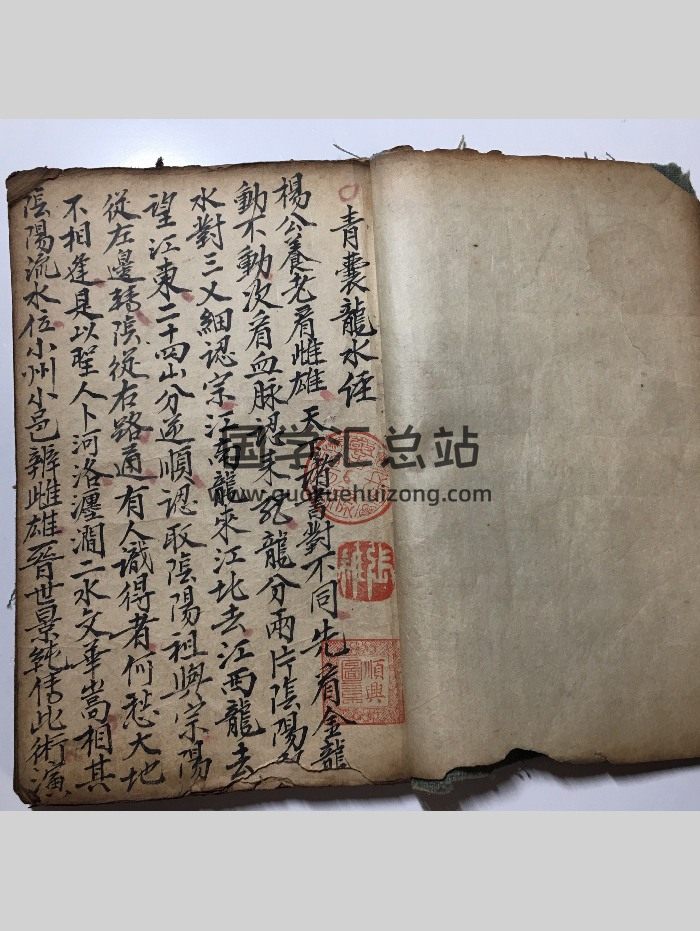 青囊龍水經
楊公養老看雌雄 天下諸書對不同先看金龍
動不動次看血脉認来龍分兩片陰陽
水對三叉細認宗江南龍來江北去江西龍去
望江東二十四山分逆順認取陰陽祖與宗陽
從左邊轉陰從右路通有人識得者何愁大地
不相逢是以聖人卜河洛瀍澗二水交華嵩相其
陰陽流水位小州小邑辨雌雄晉世景純傳此術演
順興圖章
国学汇总站
www.guoxuehuizong.com